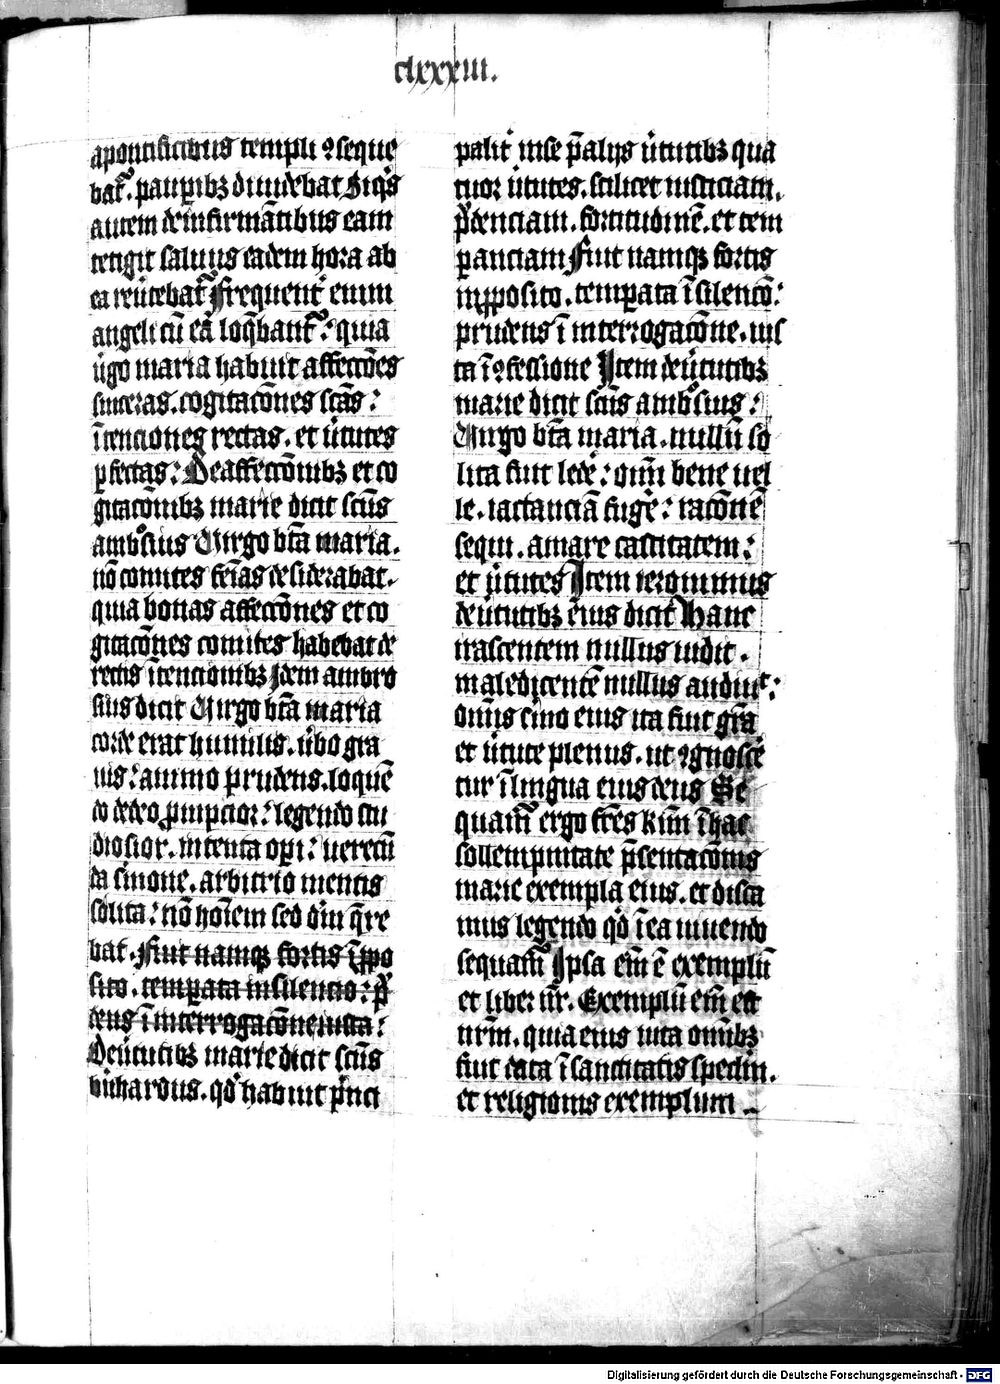 clxxxiii.
apontificibus templi ꝯseque
bat᷑. paupibꝫ diuidebat Siq̄s
autem deinfirmātibus eam
tetigit saluus eadem hora ab
ea reūtebat᷑ Frequent᷑ enim
angeli cū eā loq̄bant᷑: quia
ūgo maria habuit affectōes
sinceras. cogitacōnes scās:
ītenciones rectas. et ūtutes
ꝑfectas: De affectōnibꝫ et co
gitacōnibꝫ marie dicit scūs
ambrosius Virgo bt̄a maria.
nō comites fēias desiderabat.
quia bonas affectōnes et co
gitacōnes comites habebat de
rectis ītencionibꝫ Idem ambro
sius dicit Virgo bt̄a maria
corde erat humilis. ūbo gra
uis: animo prudens. loquē
do ꝑmpcior: legendo stu
diosior. intenta oꝑi: uerecū
da sermone. arbitrio mentis
solita: nō hoīem sed dm̄ q̄re
bat. Fiut namqꝫ fortis ī ꝓpo
sito. temꝑata insilencio: pͮ
dens ī interrogacōne iusta:
De ūtutibꝫ marie dicit scūs
bn̄hardus. qd̓ habuit pͥnci
palit᷑ inse p̄ alijs ūtutibꝫ qua
tuor ūtutes. scilicet iusticiam.
pͮdenciam. fortitudinē. et tem
ꝑanciam Fuit namqꝫ fortis
inꝓposito. temꝑata ī silencō:
prudens ī interrogacōne. ius
ta ī ꝯfessione Item de ūtutibꝫ
marie dicit scūs ambrosius:
Virgo bt̄a maria. nullū so
lita fuit ledē: oīm bene uel
le. iactanciā fugē: racōnē
sequi. amare castitatem:
et ūtutes Item ieronimus
de ūtutibꝫ eius dicit Hanc
irascentem nullus uidit.
maledicentē nullus audiuit:
omīs sīmo eius ita fuit grā
et ūtute plenus. ut ꝯgnoscē
tur ī lingua eius deus Se
quam̄ ergo frēs km̄ ī hac
sollempnitate p̄sentacōnis
marie exempla eius. et disca
mus legendo qd̓ ī ea iuuendo
sequam̄ Ipsa em̄ ē exemplū
et liber nr̄. Exemplū em̄ est
nrm̄. quia eius uita omībꝫ
fuit data ī sanctitatis speclm̄.
et religionis exemplum
Digitalisierung gefördert durch die Deutsche Forschungsgemeinschaft - DFG